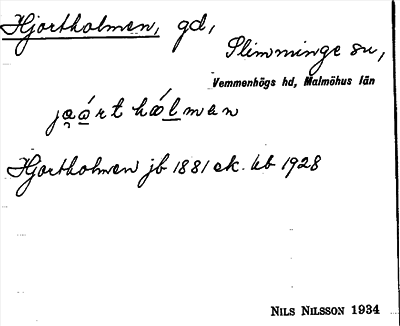 Hjortholmen, gd,
Slimminge sn,
Vemmenhögs hd, Malmöhus län
Hjortholmen jb 1881 ek. kb 1928
NILS NILSSON 1934